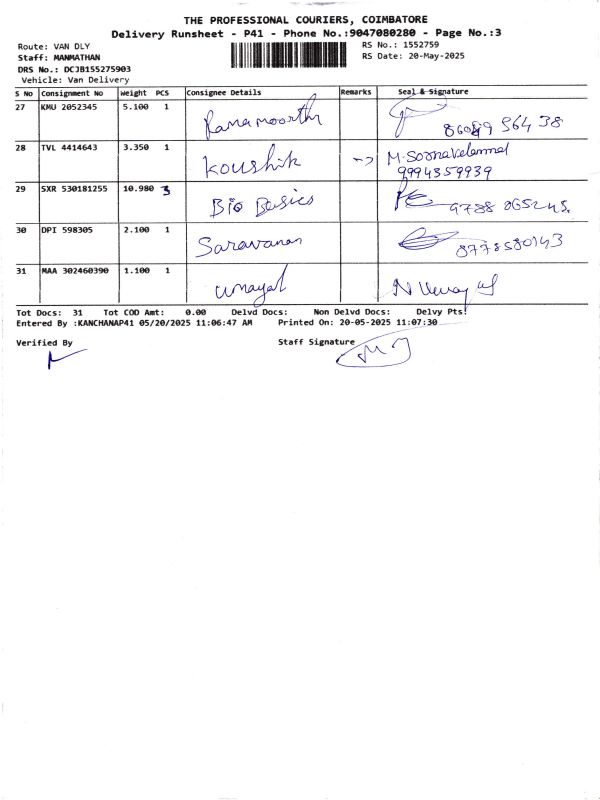 THE PROFESSIONAL COURIERS, COIMBATORE
Delivery Runsheet - P41 - Phone No.:9047080280 - Page No.:3
Route: VAN DLY
RS No.: 1552759
Staff: MANMATHAN
RS Date: 20-May-2025
DRS No.: DCJB155275903
Vehicle: Van Delivery
S No Consignment No Weight PCS Consignee Details Remarks Seal & Signature
27 KMU 2052345 5.100 1 Ramamoorthi
28 TVL 4414643 3.350 1 Koushik --> M. Sornavelammal
9994359939
29 SXR 530181255 10.980 3 Bio Basics 9788 065245.
30 DPI 598305 2.100 1 Saravanan 8778580143
31 MAA 302460390 1.100 1 Umayal
Tot Docs: 31 Tot COD Amt: 0.00 Delvd Docs: Non Delvd Docs: Delvy Pts:
Entered By :KANCHANAP41 05/20/2025 11:06:47 AM Printed On: 20-05-2025 11:07:30
Verified By Staff Signature